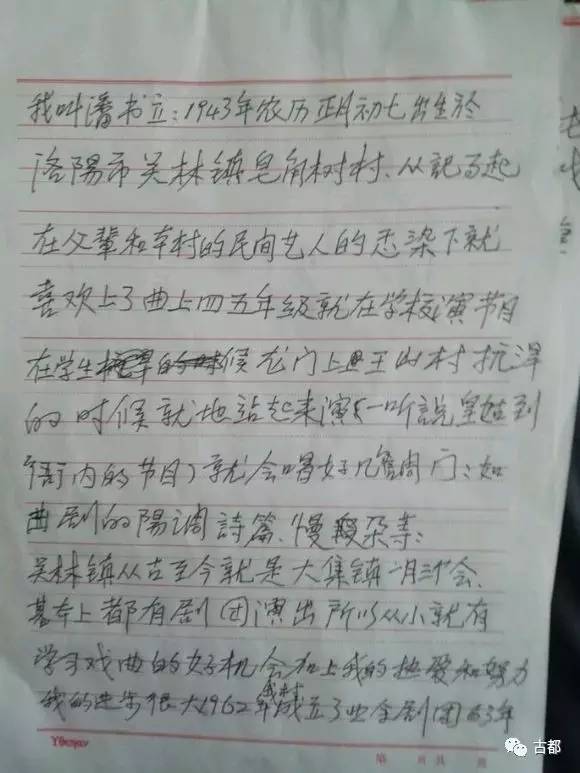 我叫潘书立:1943年农历正月初七出生於
洛阳市关林镇皂角树村、从記事起
在父輩和本村的民间艺人的感染下就
喜欢上了曲上四五年级就在学校演节目
在学生的时候龙门上王山村抗旱
的时候就地站起来演(一听説皇姑到
内的节目)就会唱好几個调门:如
曲剧的陽调詩篇、慢垛等:
关林镇从古至今就是大集镇一月三个会、
基本上都有剧团演出所以从小就有
学习戏曲的好机会加上我的热爱和努力
我的进步很大1962年我村成立了业余剧团63年
古都